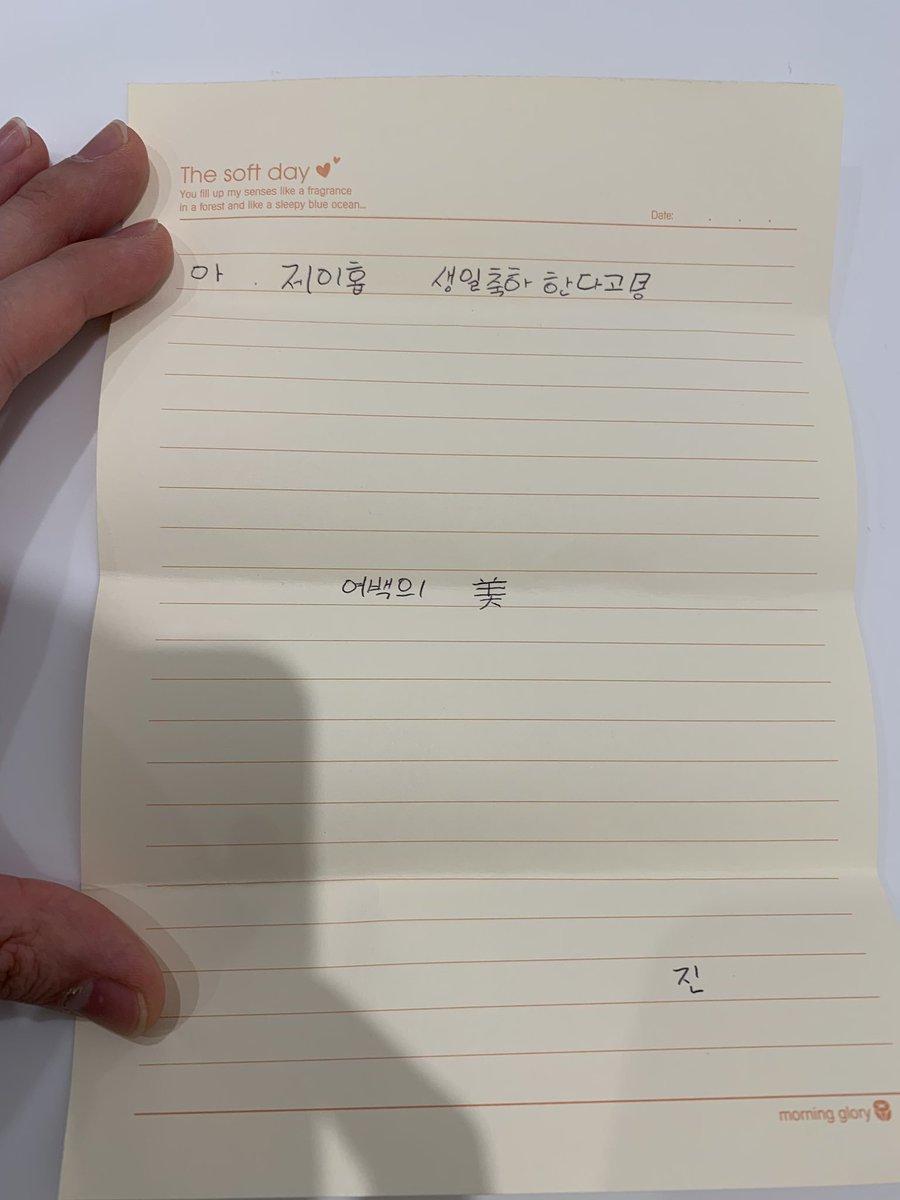 The soft day
You fill up my senses like a fragrance
in a forest and like a sleepy blue ocean...
Date: . . .
아. 제이홉 생일축하 한다고명
여백의 美
진
morning glory